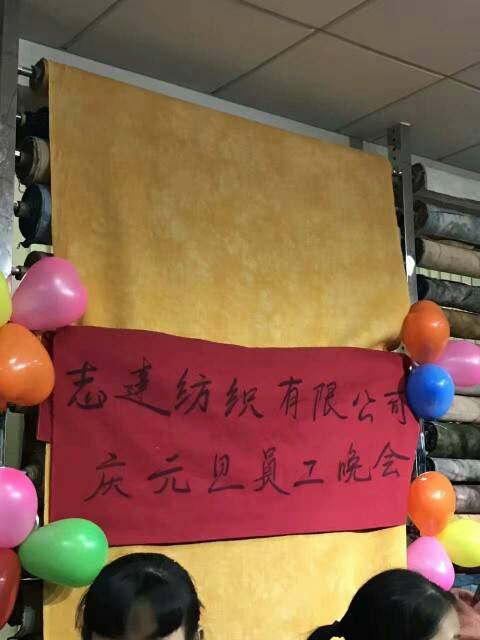 志建纺织有限公司
庆元旦员工晚会